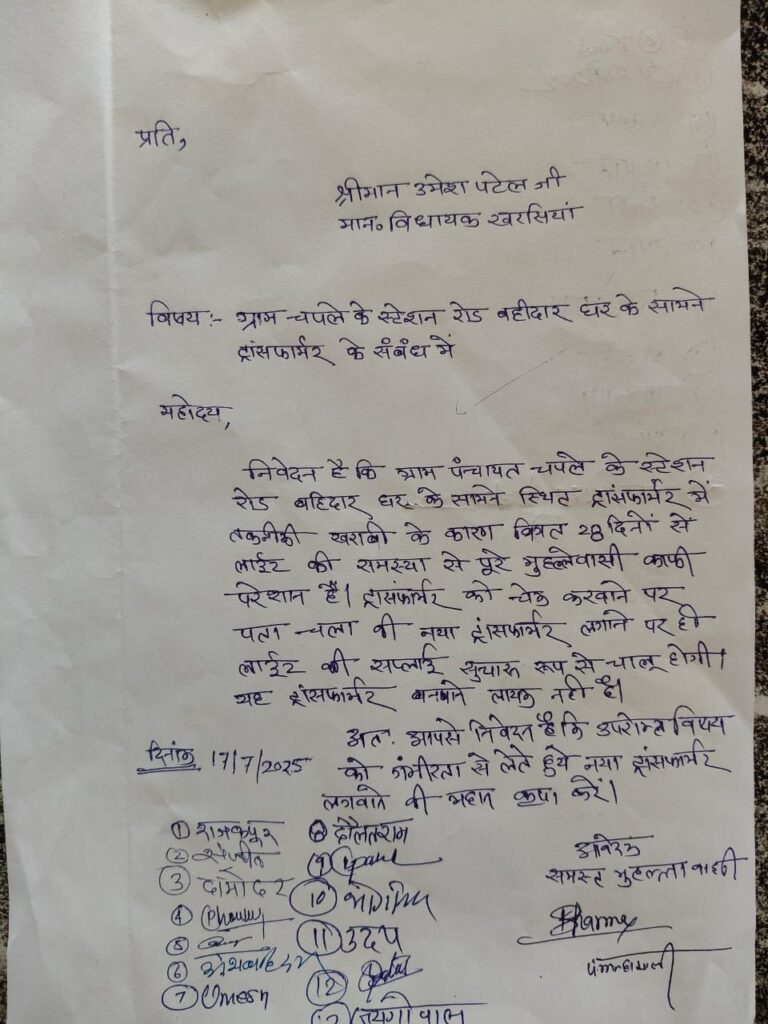 प्रति,
श्रीमान उमेश पटेल जी
मान० विधायक खरसियां
विषय :- ग्राम चपले के स्टेशन रोड बहीदार घर के सामने
ट्रांसफार्मर के संबंध में
महोदय,
निवेदन है कि ग्राम पंचायत चपले के स्टेशन
रोड बहिदार घर के सामने स्थित ट्रांसफार्मर में
तकनीकी खराबी के कारण विगत 28 दिनों से
लाईट की समस्या से पूरे मुहल्लेवासी काफी
परेशान हैं। ट्रांसफार्मर को चेक करवाने पर
पता चला की नया ट्रांसफार्मर लगाने पर ही
लाईट की सप्लाई सुचारू रूप से चालू होगी।
यह ट्रांसफार्मर बनवाने लायक नहीं है।
अतः आपसे निवेदन है कि उपरोक्त विषय
दिनांक 17/7/2025 को गंभीरता से लेते हुये नया ट्रांसफार्मर
लगवाने की महान कृपा करें।
① राजकपूर ⑧ दौलतराम
② संजीत ⑨
③ दामोदर ⑩
④
⑤ ⑪ उदय
⑥
⑦ Umesh ⑫
जयगोपाल
आवेदक
समस्त मुहल्ला वासी